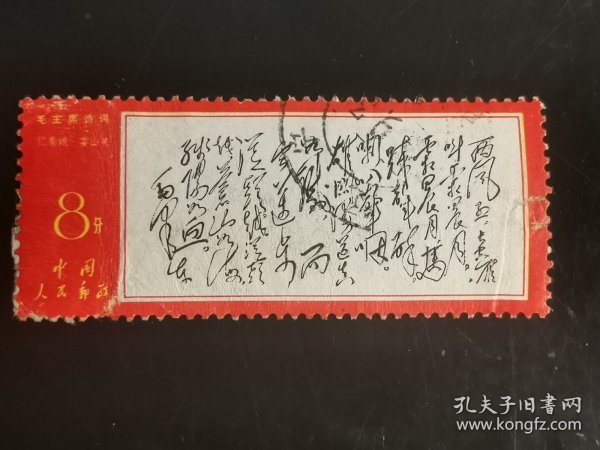 毛主席诗词
忆秦娥 娄山关
8分
中国
人民邮政
西风烈,长空雁
叫霜晨月。
霜晨月,马
蹄声碎,
喇叭声咽。
雄关漫道真
如铁,而
今迈步
从头越。从头
越,苍山如海,
残阳如血。
毛泽东
孔夫子旧书网
www.kongfz.com